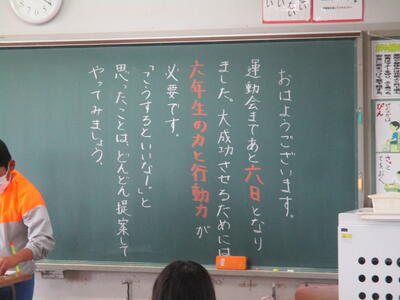 おはようございます。
運動会まであと六日となり
ました。大成功させるためには
六年生の力と行動力が
必要です。
「こうするといいなー。」と
思ったことは、どんどん提案して
やってみましょう。